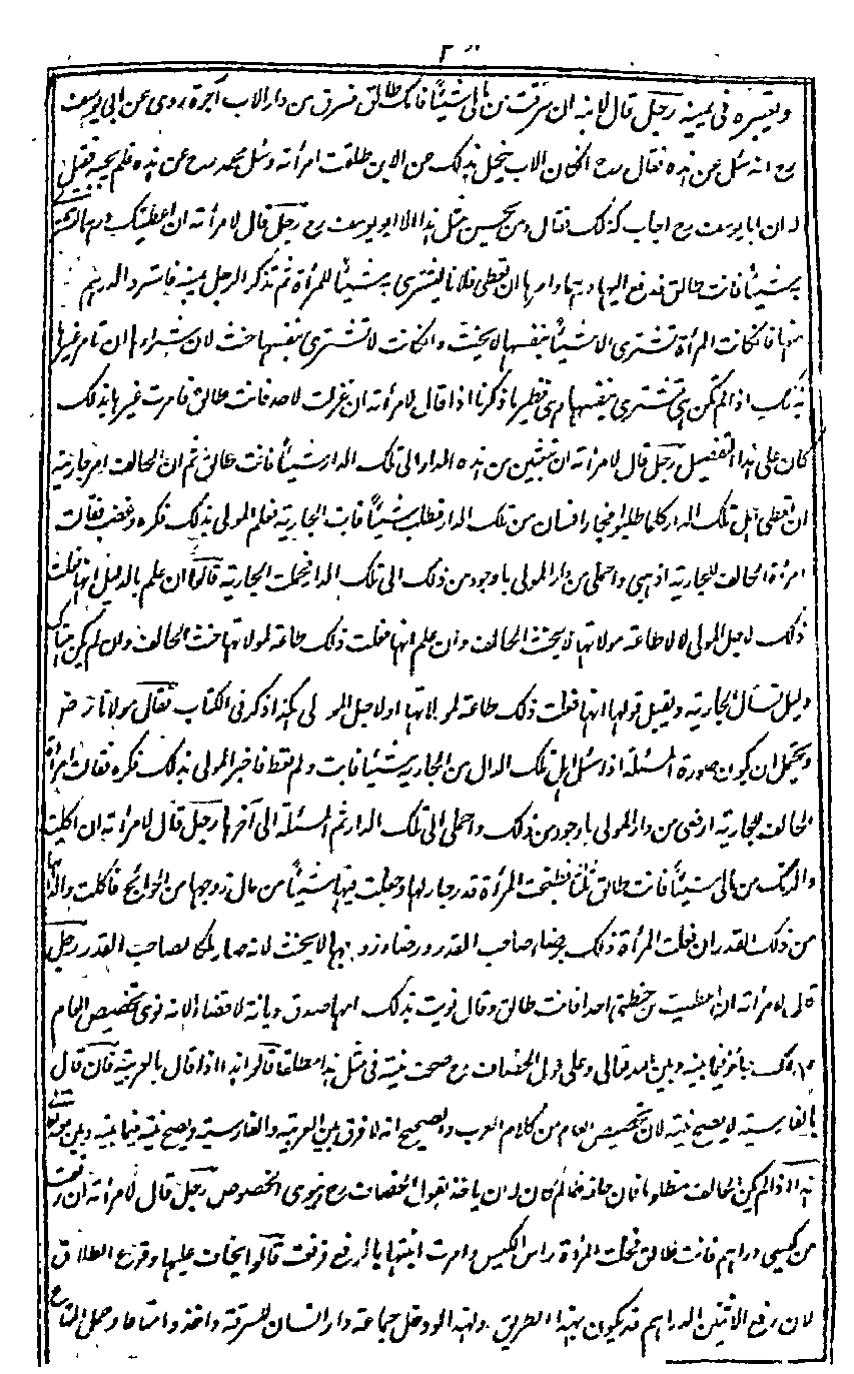 ويعتبره فى يمينه رجل قال لابنه ان سرقت من مالى شيئا فامك طالق فسرق من دار الاب آجرة روى عن ابى يوسف
رح انه سئل عن هذه فقال رح ان كان الاب يبخل بذلك عن الابن طلقت امرأته وسئل محمد رح عن هذه فلم يجب فقيل
له ان ابا يوسف رح اجاب كذلك فقال ومن يحسن مثل هذا الا ابو يوسف رح رجل قال لامرأته ان اعطيتك درهما لتشترى
به شيئا فانت طالق فدفع اليها درهما وامرها ان تعطى فلانا ليشترى به شيئا للمرأة ثم تذكر الرجل يمينه فاسترد الدرهم
منها فان كانت المرأة تشترى الاشياء بنفسها لا يحنث وان كانت لا تشترى بنفسها حنث لان شراءها ان تأمر غيرها
بذلك اذا لم تكن هى تشترى بنفسها وهى نظير ما ذكرنا اذا قال لامرأته ان غزلت لاحد فانت طالق فامرت غيرها بذلك
كان على هذا التفصيل رجل قال لامرأته ان تبعثين من هذه الدار الى تلك الدار شيئا فانت طالق ثم ان الحالف امر جاريته
ان تعطى اهل تلك الدار كلما طلبوا فجاء انسان من تلك الدار فطلب شيئا فابت الجارية فعلم المولى بذلك فكره وغضب فقالت
امرأة الحالف للجارية اذهبى واحملى من دار المولى باجود من ذلك الى تلك الدار فحملت الجارية قالوا ان علم بالدليل انها فعلت
ذلك لاجل المولى لا لاطاعة مولاتها لا يحنث الحالف وان علم انها فعلت ذلك طاعة لمولاتها حنث الحالف وان لم يكن هناك
دليل تسأل الجارية ويقبل قولها انها فعلت ذلك طاعة لمولاتها او لاجل المولى هكذا ذكر فى الكتاب فقال مولانا رض
ويحتمل ان يكون صورة المسئلة اذا سئل اهل تلك الدار من الجارية شيئا فابت ولم تعط فاخبر المولى بذلك فكره فقالت امرأة
الحالف للجارية ارفعى من دار المولى باجود من ذلك واحملى الى تلك الدار ثم المسئلة الى آخرها رجل قال لامرأته ان اكلت
والدتك من مالى شيئا فانت طالق ثلثا فطبخت المرأة قدر جار لها وجعلت فيها شيئا من مال زوجها من الحوائج فاكلت والدتها
من ذلك القدر ان فعلت المرأة ذلك برضاء صاحب القدر ورضاء زوجها لا يحنث لانه صار ملكا لصاحب القدر رجل
قال لامرأته ان اعطيت من حنطتى احدا فانت طالق وقال نويت بذلك امها صدق ديانة لا قضاء لانه نوى تخصيص العام
وذلك جائز فيما بينه وبين الله تعالى وعلى قول الخصاف رح صحت نيته فى مثل هذا مطلقا قالوا هذا اذا قال بالعربية فان قال
بالفارسية لا يصح نيته لان تخصيص العام من كلام العرب والصحيح انه لا فرق بين العربية والفارسية ويصح نيته فيما بينه وبين
هذا اذا لم يكن الحالف مظلوما فان حلفه ظالم كان له ان ياخذ بقول الخصاف رح وينوى الخصوص رجل قال لامرأته ان رفعت
من كيسى دراهم فانت طالق فحلت المرأة راس الكيس وامرت ابنتها بالرفع فرفعت قالوا يخاف عليها وقوع الطلاق
لان رفع الاثنين الدراهم قد يكون بهذا الطريق ولهذا لو دخل جماعة دار انسان للسرقة واخذوا متاعا وحمل المتاع